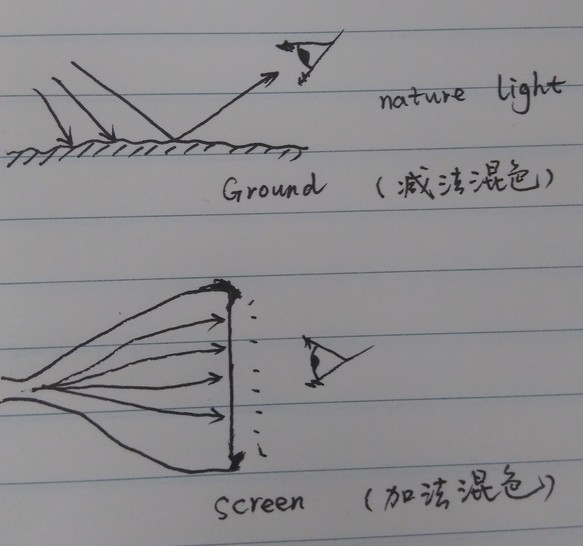 nature light
Ground （减法混色）
screen （加法混色）